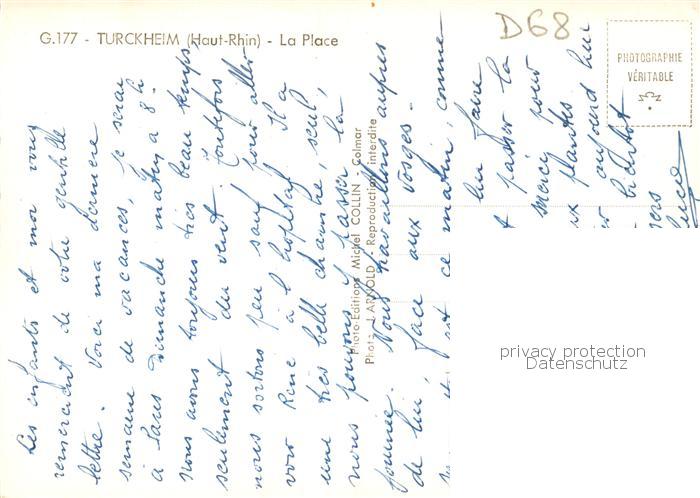 G.177 - TURCKHEIM (Haut-Rhin) - La Place
D68
PHOTOGRAPHIE
VÉRITABLE
Photo-Editions Michel COLLIN Colmar
Photo J. ARNOLD - Reproduction interdite
Les enfants et moi vous
remercient de votre gentille
lettre. Voici ma dernière
semaine de vacances, je serai
à Paris Dimanche matin à 8 h.
Nous avons toujours très beau temps
seulement du vent. Toutefois
nous sortons peu sauf pour aller
voir René à l'hôpital. Il a
une très belle chambre, seul,
nous pouvons y passer la
journée. Nous travaillons auprès
de lui, face aux Vosges.
est ce matin, comme
lui faire
t passer la
merci pour
ux plantes
er aujourd'hui
bientôt
privacy protection
Datenschutz